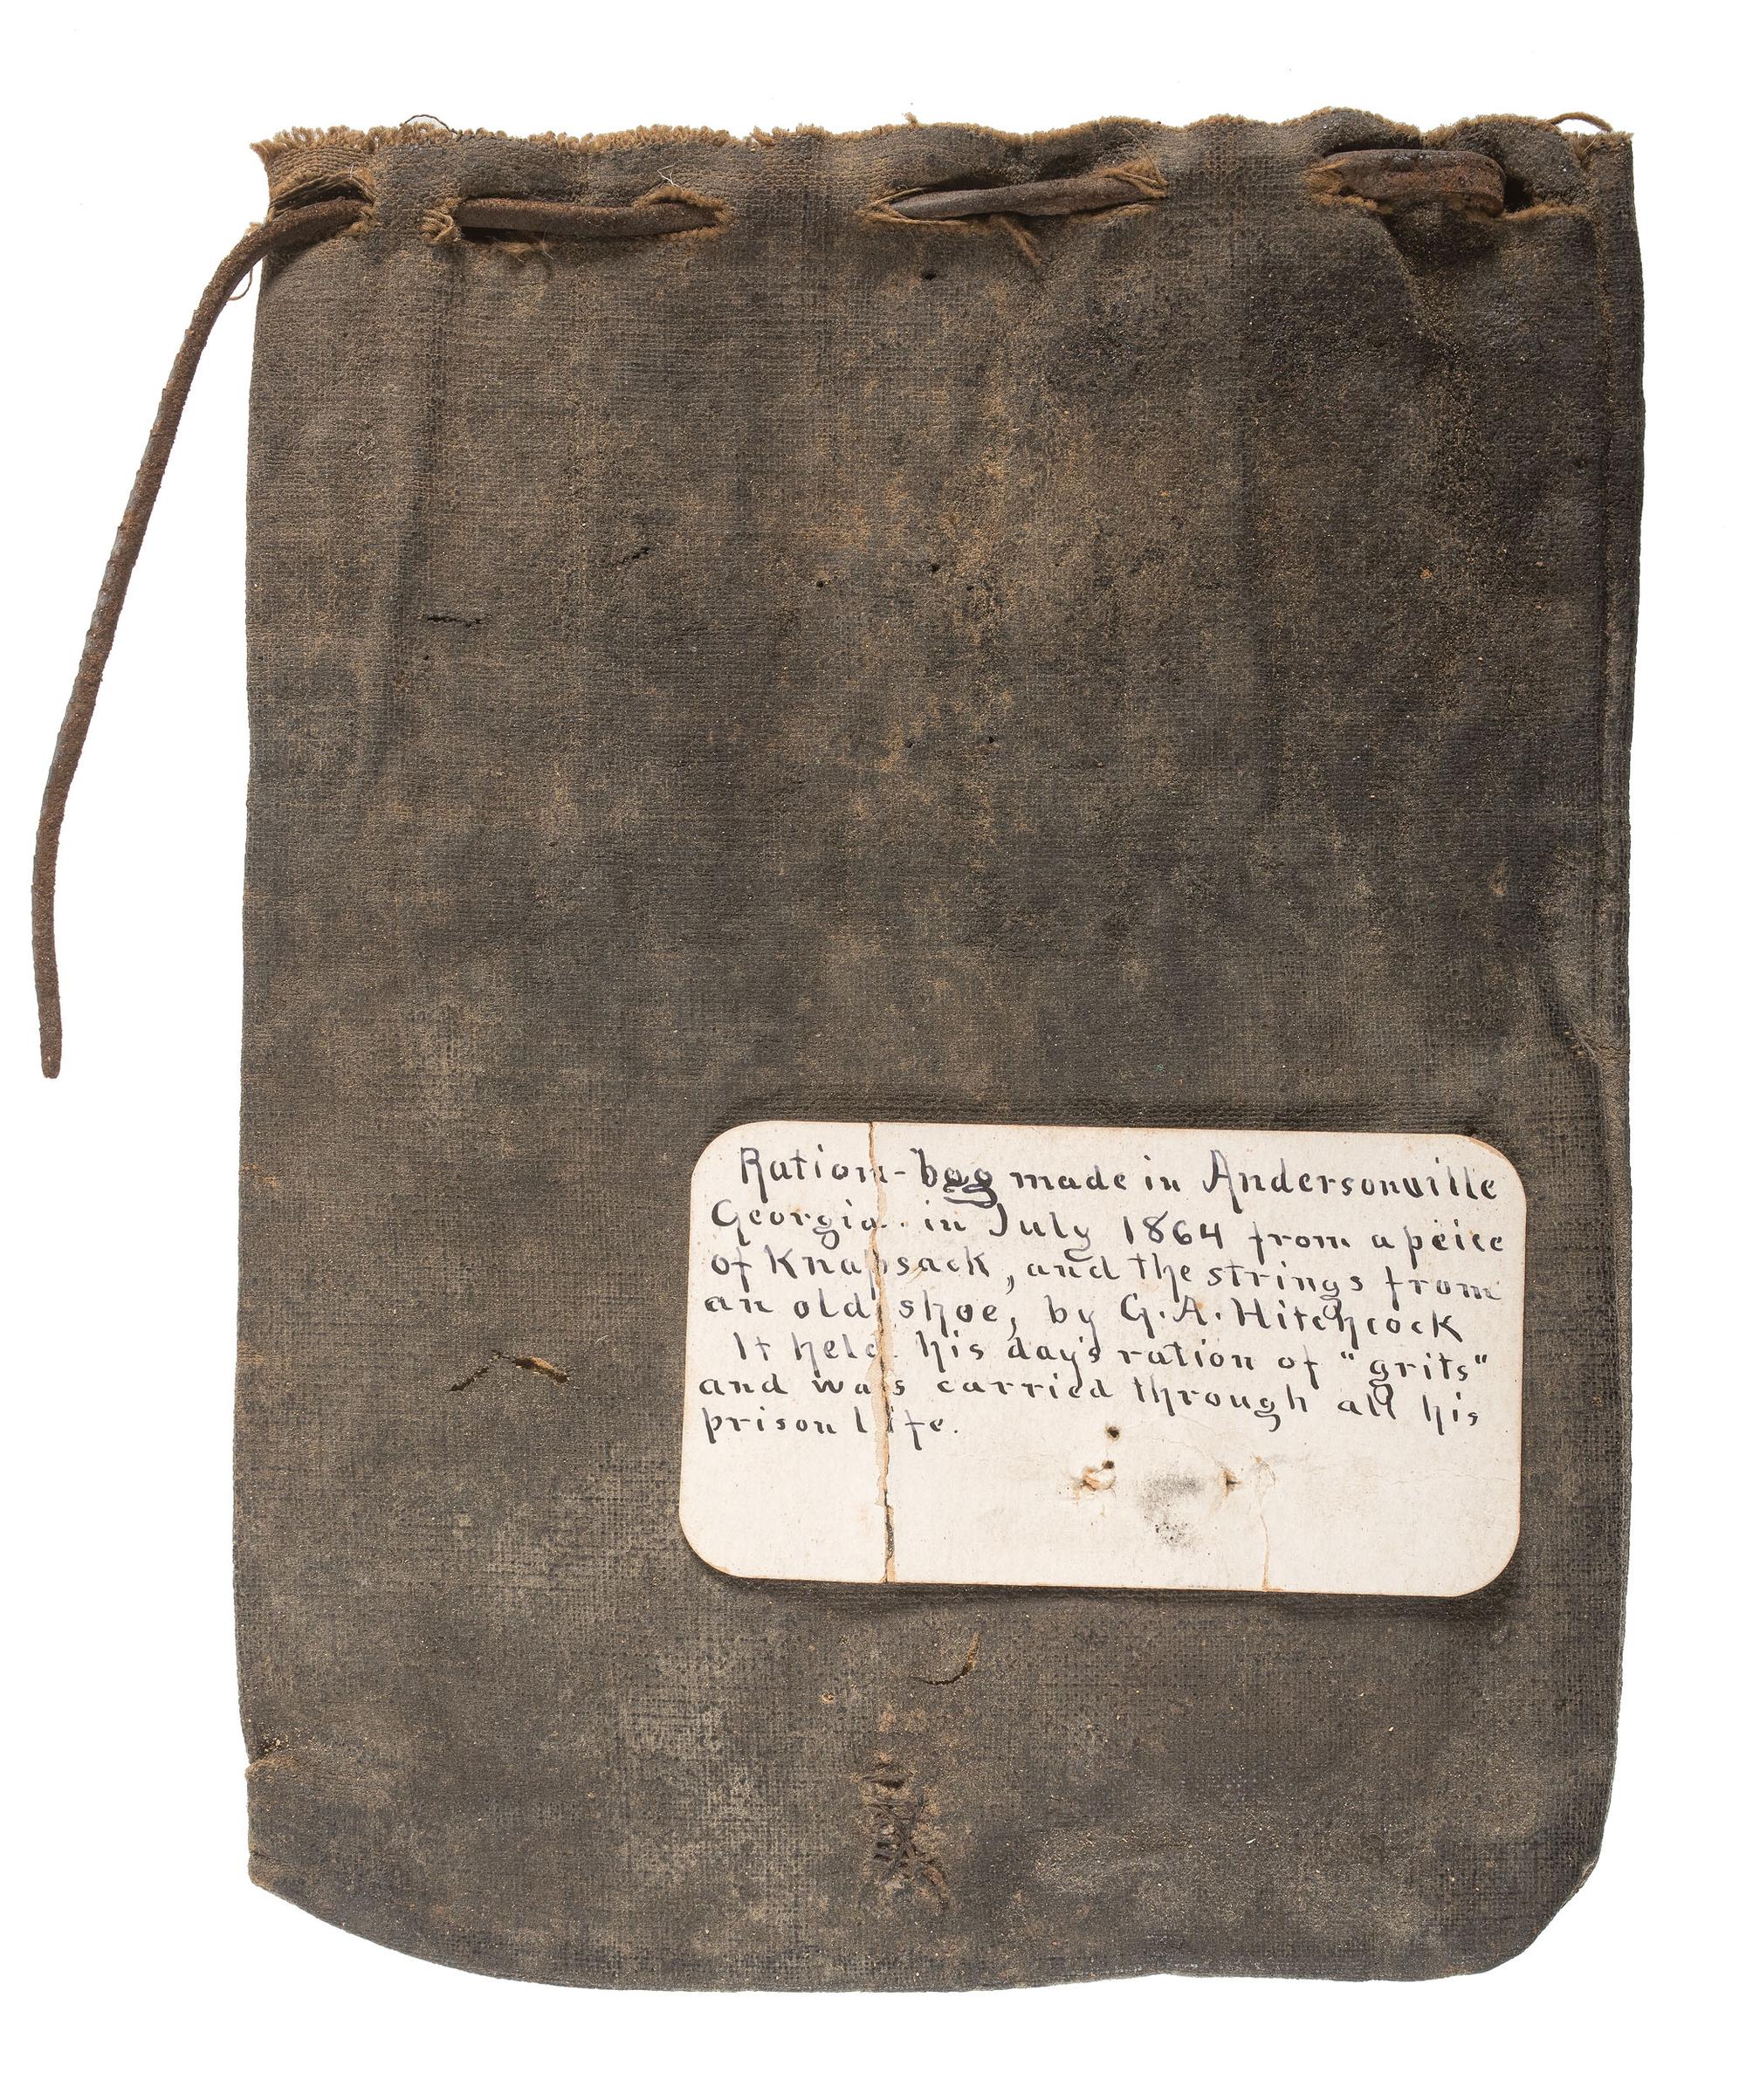 Ration-bag made in Andersonville
Georgia. in July 1864 from a peice
of Knapsack, and the strings from
an old shoe, by G. A. Hitchcock
It held his day's ration of "grits"
and was carried through all his
prison life.